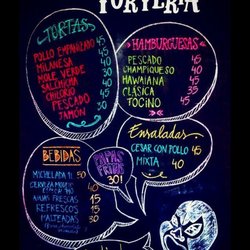 TORTERIA
TORTAS
POLLO EMPANIZADO 45
MILANESA 45
MOLE VERDE 40
SALCHICHA 30
CHILORIO 45
PESCADO 45
JAMÓN 30
HAMBURGUESAS
PESCADO 45
CHAMPIQUESO 40
HAWAIANA 45
CLÁSICA 35
TOCINO 45
BEBIDAS
MICHELADA 1L 50
CERVEZA 30
AGUAS FRESCAS 15
REFRESCOS
MALTEADAS
PAPAS
FRITAS
30!
Ensaladas
CESAR CON POLLO 45
MIXTA 40